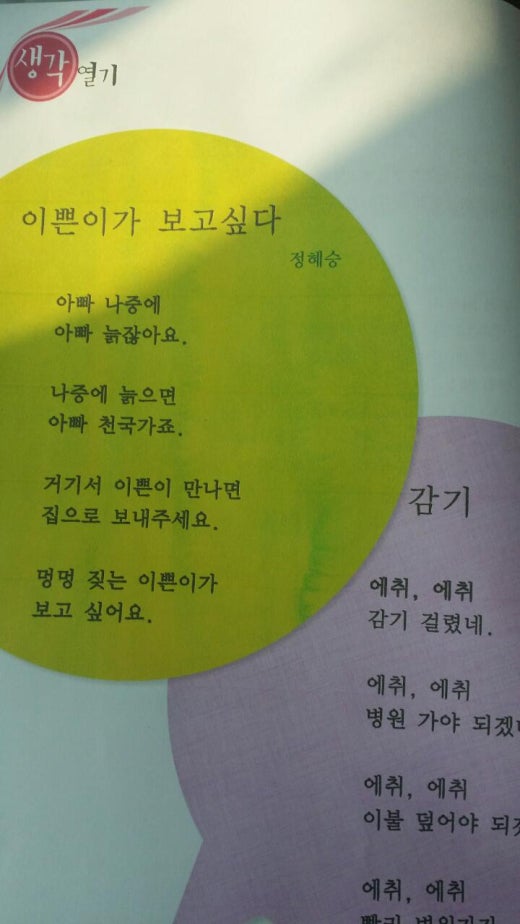 생각
열기
이쁜이가 보고싶다
정혜승
아빠 나중에
아빠 늙잖아요.
나중에 늙으면
아빠 천국가죠.
거기서 이쁜이 만나면
집으로 보내주세요.
멍멍 짖는 이쁜이가
보고 싶어요.
감기
에취, 에취
감기 걸렸네.
에취, 에취
병원 가야
에취, 에취
이불 덮어야
에취, 에취